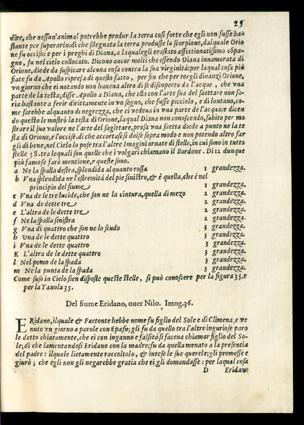 25
dire, che nessun'animal potrebbe produr la terra così forte che egli non fusse ba-
stante per superarlo: di che sdegnata la terra produsse lo scorpione, dal quale Orio
ne fu occiso: e per i preghi di Diana, a laquale gli era stato affettionatissimo cõpa-
gno, fu nel cielo collocato. Dicono ancor molti che essendo Diana innamorata di
Orione, diede da suspicare alcuna cosa contra la sua virginità: per la qual cosa più
fiate fu da Apollo ripresa di questo fatto, per fin che per torgli dinanzi Orione,
un giorno che ei notando non haueua altro di se discoperto da l'acqua, che una
parte de la testa, disse Apollo a Diana, che ella con l'arte sua del saettare non sa-
ria bastante a ferir drittamente in un segno, che fusse picciolo, e di lontano, co-
me sarebbe alquanto di negrezza, che ei vedeua in una parte de l'acque: dicen
do questo le mostrò la testa di Orione, laqual Diana non conoscendo, subito per mo
strare il suo valore ne l'arte del sagittare, presa una saetta diede a punto ne la te
sta di Orione, e l'occise. di che accortasi si dolse sopra modo: e non potendo altro far
gli di bene, nel Cielo lo pose tra l'altre imagini ornate di stelle, in cui sono in tutto
stelle 38. tra lequali son quelle che i volgari chiamano il Bordone. Di 12 dunque
più famose farò mentione, e queste sono.
a Ne la spalla destra, splendida al quanto rossa 1 grandezza.
b Una splendida ne l'estremità del pie sinistro, & è quella, che è nel
principio del fiume 1 grandezza.
c Una de le tre lucide, che son ne la cintura, quella di mezo 2 grandezza.
d Una de dette tre 2 grandezza.
e L'altra de le dette tre 2 grandezza.
f Ne la spalla sinistra 2 grandezza.
g Una di quattro che son ne lo scudo 3 grandezza.
h Una de le dette quattro 3 grandezza.
i Una de le dette quattro 3 grandezza.
K L'altra de le dette quattro 3 grandezza.
l Nel pomo de la spada 3 grandezza.
m Ne la punta de la spada 3 grandezza.
Come sus'in Cielo sien disposte queste stelle, si può conoscere per la figura 35. e
per la Tauola 35.
Del fiume Eridano, ouer Nilo. Imag. 36.
ERidano, il quale & Faetonte hebbe nome fu figlio del Sole e di Climena, e ve
nuto un giorno a parole con Epafo, gli fu da quello tra l'altre ingiuriose paro
le detto chiaramente, che ei con inganno e falsità si faceua chiamar figlio del So-
le; di che lamentandosi Eridano con la madre, fu da quella menato a la presentia
del padre: ilquale lietamente raccoltolo, & intese le sue querele; gli promesse e
giurò; che egli non gli negarebbe gratia che ei gli domandasse: per laqual cosa
D Eridano